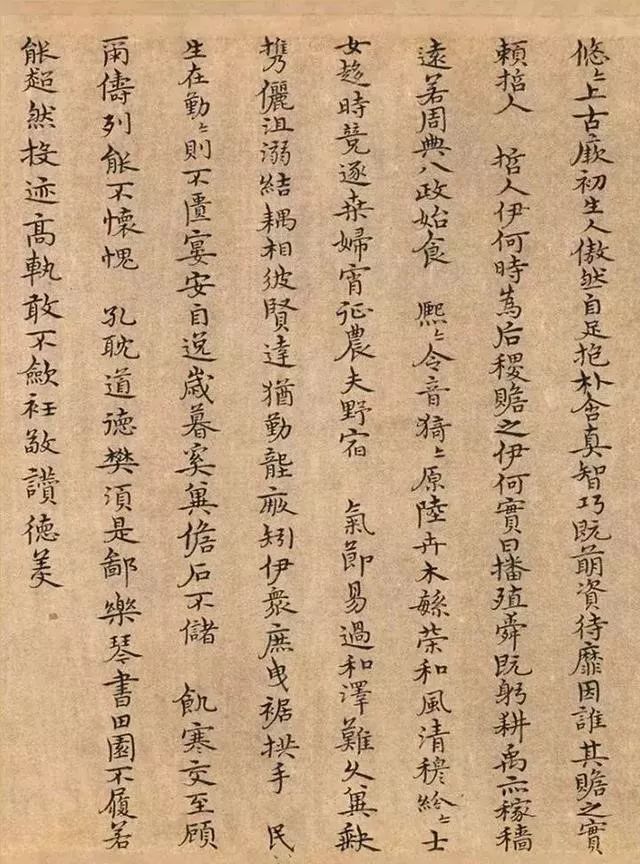 悠〻上古厥初生人傲然自足抱朴含真智巧既萌資待靡因誰其贍之實
賴哲人 哲人伊何時為后稷贍之伊何實曰播殖舜既躬耕禹亦稼穡
遠若周典八政始食 熈〻令音猗〻原陸卉木繁榮和風清穆紛〻士
女趍時競逐桒婦宵征農夫野宿 氣節易過和澤難久冀缺
携儷沮溺結耦相彼賢達猶勤壟畝矧伊衆庶曳裾拱手 民
生在勤〻則不匱宴安自逸歲暮奚冀儋石不儲 飢寒交至顧
爾儔列能不懷愧 孔耽道德樊須是鄙樂琴書田園不履若
能超然投迹高軌敢不歛衽敬讚德美